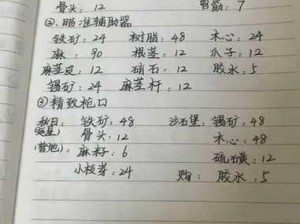 骨头, 12 胃筋, 7
②. 瞄准辅助器
铁矿: 24 树脂: 48 木心: 24
麻: 90 根茎: 12 爪子: 12
麻茎皮: 12 硝石: 12 胶水: 5
锡矿: 24 麻茎秆: 12
④精致枪口
秋日: 铁矿: 48 沙石堡: 锡矿: 48
骨头: 12 木心: 48
麻籽: 6 硫磺: 12
小枝芽: 24 购: 胶水: 5